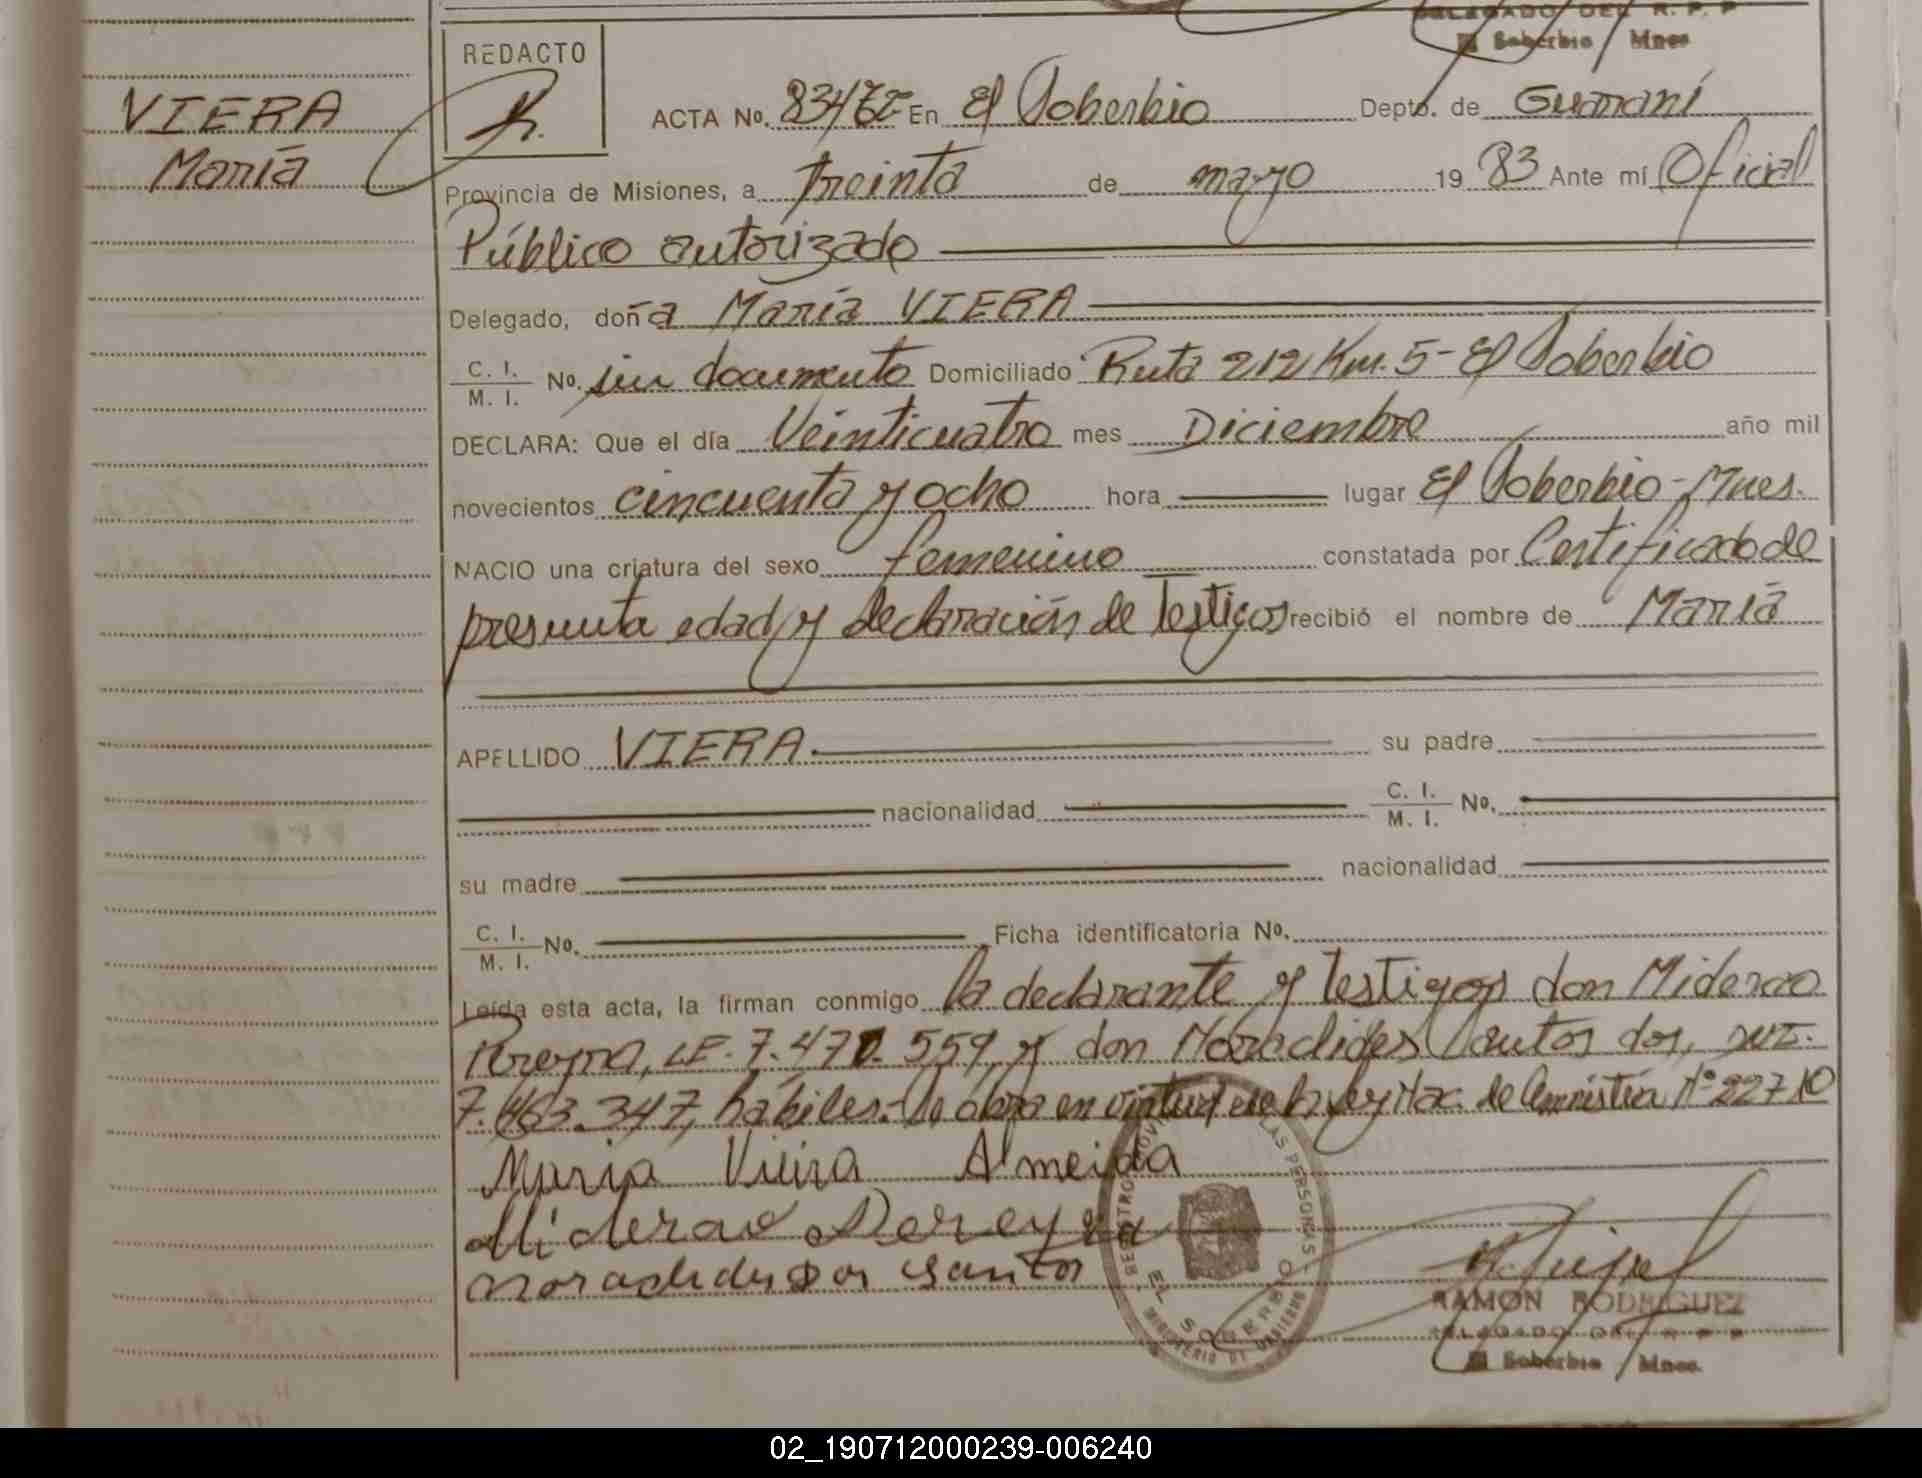 DELEGADO DEL R. P. P
El Soberbio Mnes
REDACTO
VIERA
María
ACTA No. En El Soberbio Depto. de Guaraní
Provincia de Misiones, a treinta de mayo 1983 Ante mí Oficial
Público autorizado
Delegado, doña María VIERA
C. I.
M. I.
No. sin documento Domiciliado Ruta 212 Km. 5- El Soberbio
DECLARA: Que el día Veinticuatro mes Diciembre año mil
novecientos cincuenta y ocho hora lugar El Soberbio-Mnes.
NACIO una criatura del sexo femenino constatada por Certificado de
presunta edad y declaración de Testigos recibió el nombre de María
APELLIDO VIERA su padre
nacionalidad C. I.
M. I.
No.
su madre nacionalidad
C. I.
M. I.
No. Ficha identificatoria No.
Leída esta acta, la firman conmigo la declarante y testigos don Miderao
Pereyra, LE. 7.471.559, y don Noraclides Santos dos,
7.463.347, hábiles.- en virtud de la Ley Nac. de Amnistía N° 22710
Maria Vieira Almeida
Miderao Pereyra
santos
REGISTRO PROVINCIAL DE LAS PERSONAS
EL SOBERBIO
MINISTERIO DE GOBIERNO
RAMON RODRIGUEZ
DELEGADO DEL R P P
El Soberbio Mnes.
02_190712000239-006240